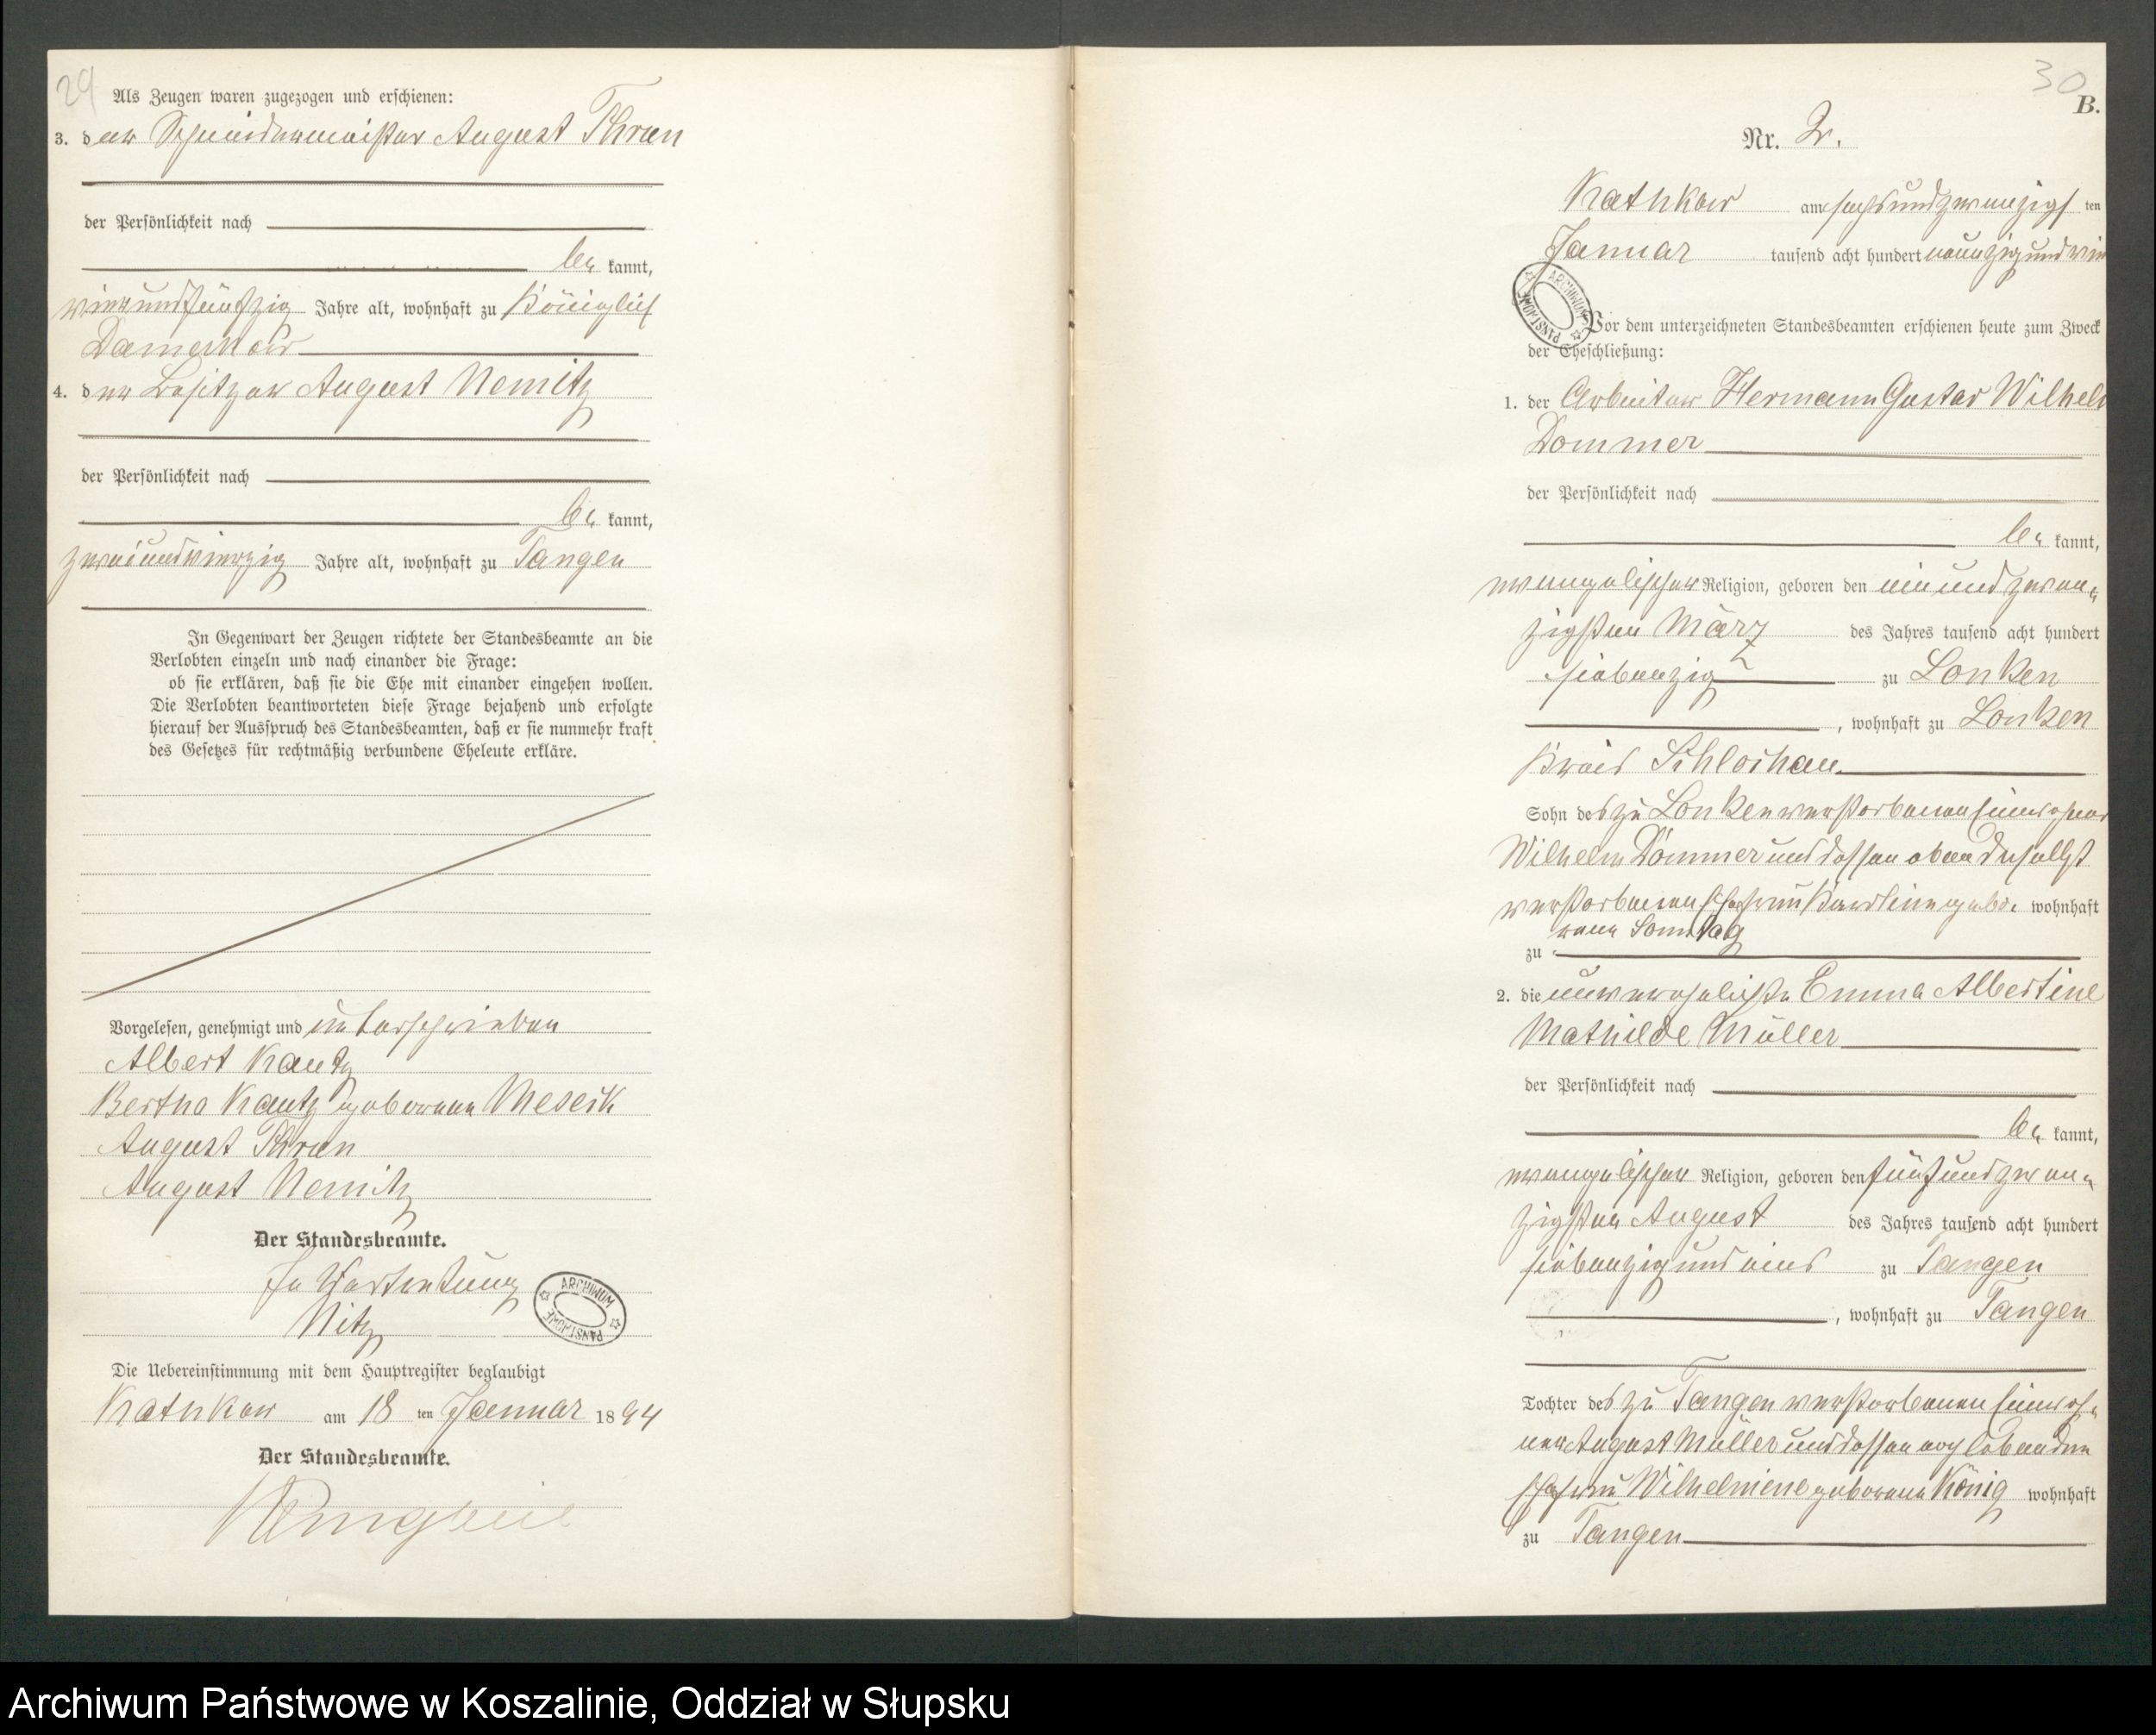 29
Als Zeugen waren zugezogen und erschienen:
3. der Schneidermeister August Thran
der Persönlichkeit nach
be„ kannt,
vierundfünfzig Jahre alt, wohnhaft zu Königlich
Damerkow
4. der Besitzer August Nemitz
der Persönlichkeit nach
be„ kannt,
zweiundvierzig Jahre alt, wohnhaft zu Tangen
In Gegenwart der Zeugen richtete der Standesbeamte an die
Verlobten einzeln und nach einander die Frage:
ob sie erklären, daß sie die Ehe mit einander eingehen wollen.
Die Verlobten beantworteten diese Frage bejahend und erfolgte
hierauf der Ausspruch des Standesbeamten, daß er sie nunmehr kraft
des Gesetzes für rechtmäßig verbundene Eheleute erkläre.
Vorgelesen, genehmigt und unterschrieben
Albert Kautz
Bertha Kautz geborene Meseck
August Thran
August Nemitz
Der Standesbeamte.
In Vertretung
Nitz
ARCHIWUM PAŃSTWOWE
Die Uebereinstimmung mit dem Hauptregister beglaubigt
Kathkow am 18 ten Januar 1894
Der Standesbeamte.
30
B.
Nr. 2.
Kathkow am sechsundzwanzigs ten
Januar tausend acht hundert neunzig und vier
ARCHIWUM PAŃSTWOWE
Vor dem unterzeichneten Standesbeamten erschienen heute zum Zweck
der Eheschließung:
1. der Arbeiter Hermann Gustav Wilhelm
Dommer
der Persönlichkeit nach
be„ kannt,
evangelischer Religion, geboren den ein und zwan„
zigsten März des Jahres tausend acht hundert
siebenzig zu Lonken
, wohnhaft zu Lonken
Kreis Schlochau
Sohn des zu Lonken verstorbenen Einwohner
Wilhelm Dommer und dessen ebendaselbst
verstorbenen Ehefrau Karoline gebo„ wohnhaft
rene Sonntag
zu
2. die unverehelichte Emma Albertine
Mathilde Müller
der Persönlichkeit nach
be„ kannt,
evangelischer Religion, geboren den fünf und zwan„
zigsten August des Jahres tausend acht hundert
siebenzig und eins zu Tangen
, wohnhaft zu Tangen
Tochter des zu Tangen verstorbenen Einwoh„
ner August Müller und dessen noch lebenden
Ehefrau Wilhelmine geborene König wohnhaft
zu Tangen
Archiwum Państwowe w Koszalinie, Oddział w Słupsku